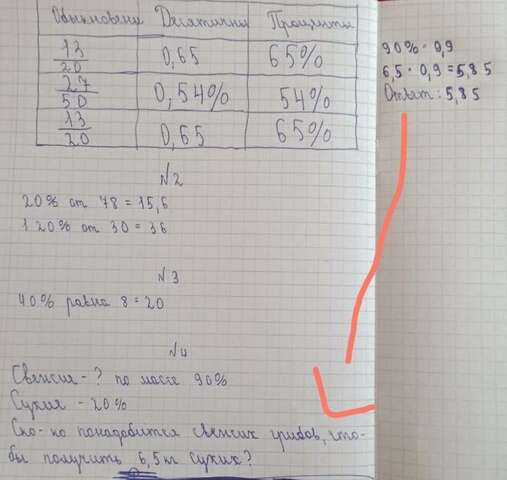 Обыкновенн Десятичны Проценты
13/20 0,65 65%
27/50 0,54% 54%
13/20 0,65 65%
№2
20% от 78 = 15,6
120% от 30 = 36
№3
40% равна 8 = 20
№4
Свежие - ? по массе 90%
Сухия - 20%
Ско-ко понадобится свежих грибов, что-
бы получить 6,5 кг сухих?
90% = 0,9
6,5 · 0,9 = 5,85
Ответ: 5,85